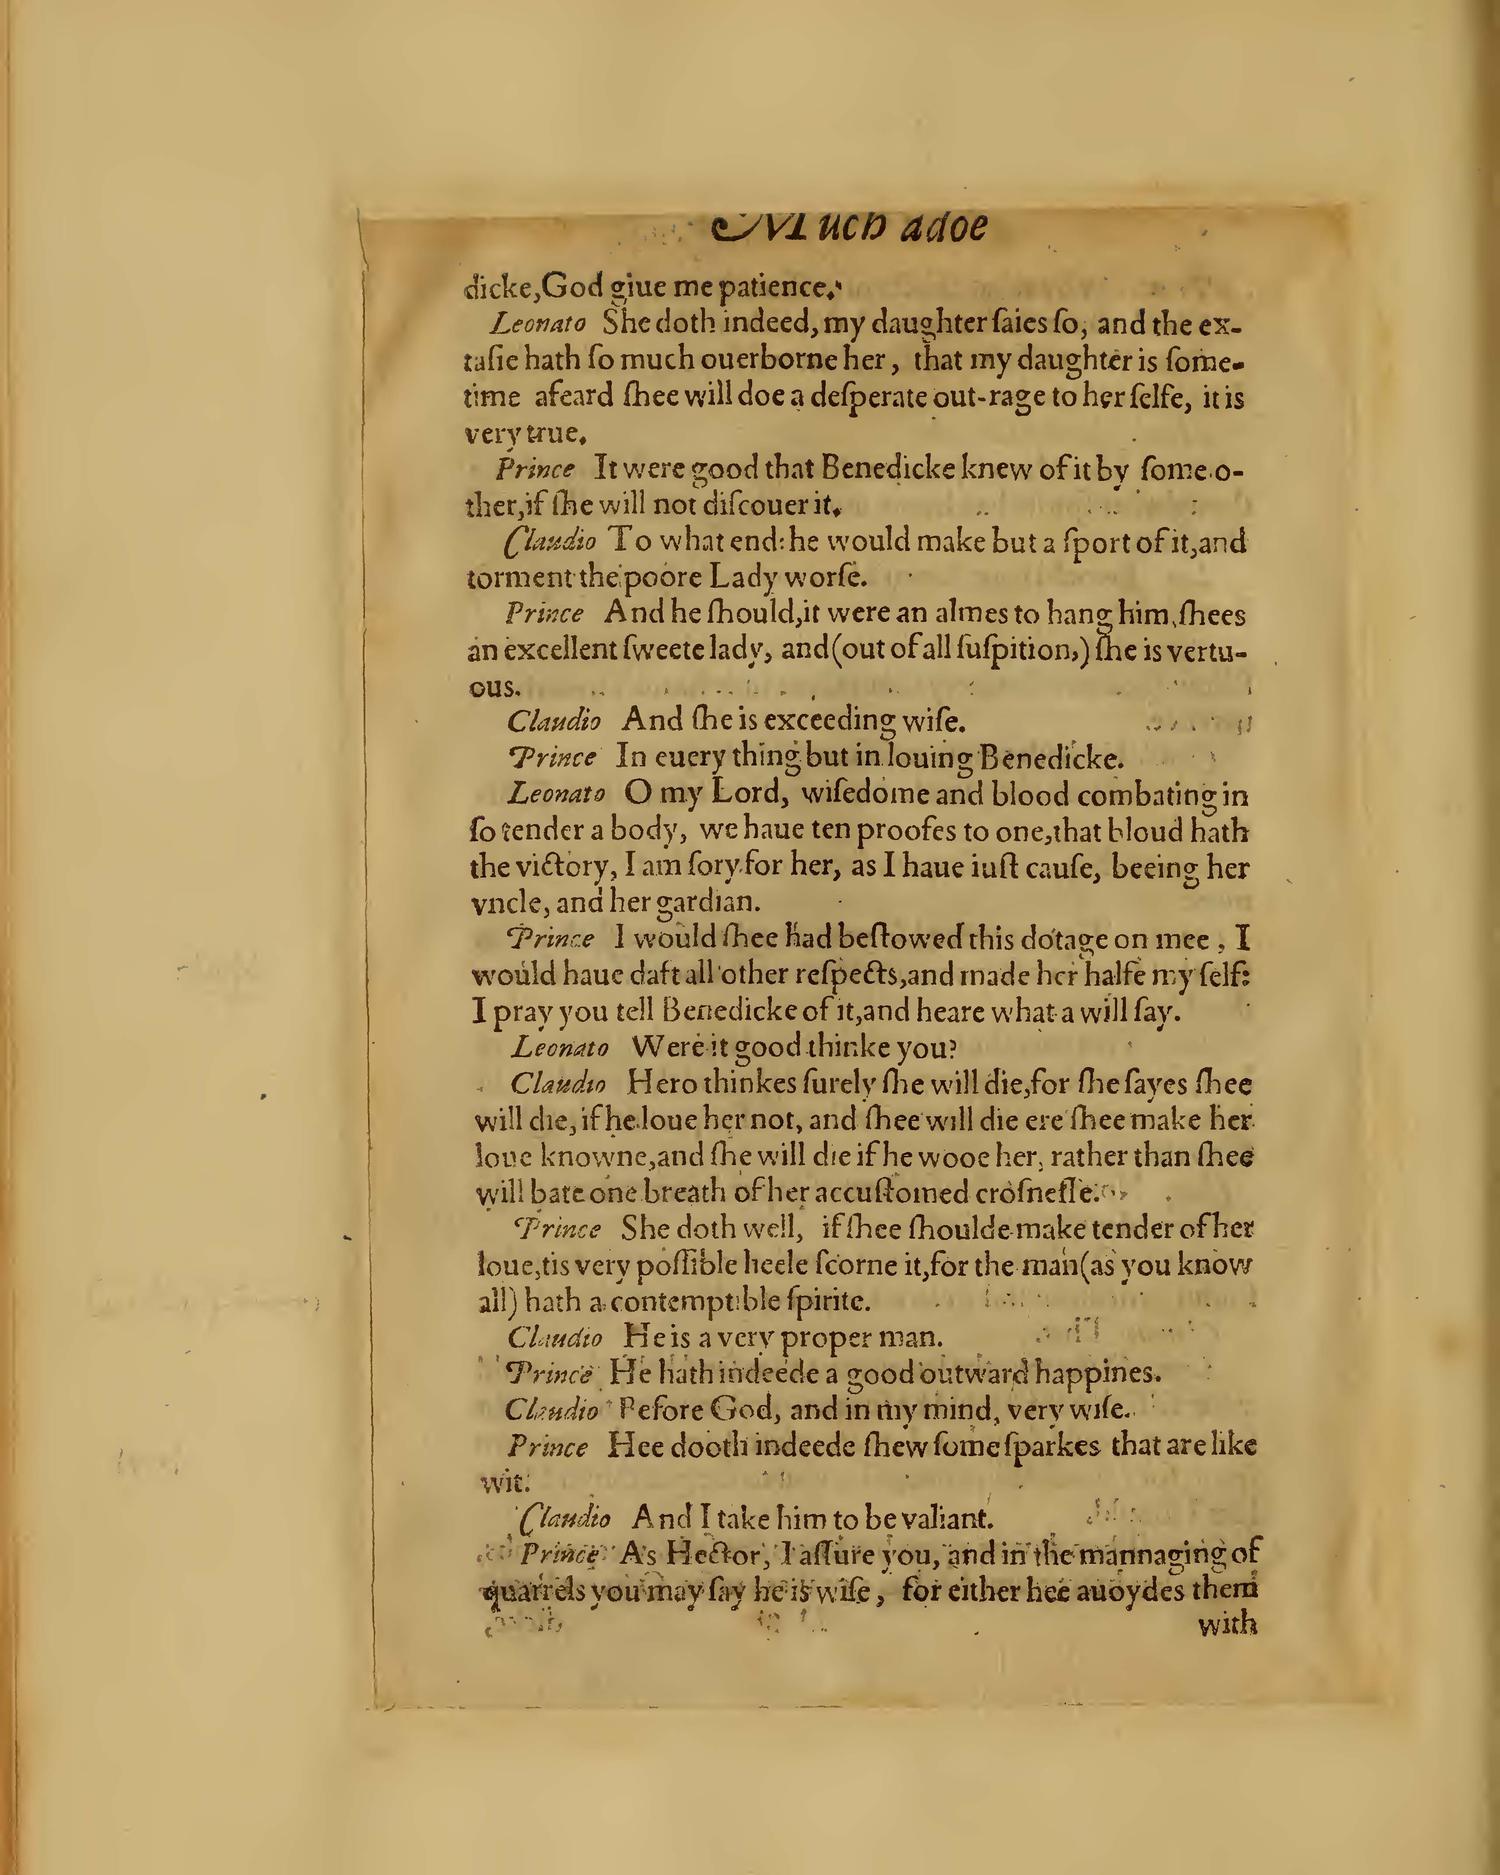 Much adoe
dicke,God giue me patience.
Leonato She doth indeed, my daughter ſaies ſo, and the ex-
taſie hath ſo much ouerborne her, that my daughter is ſome-
time afeard ſhee will doe a deſperate out-rage to her ſelfe, it is
very true.
Prince It were good that Benedicke knew of it by ſome o-
ther,if ſhe will not diſcouer it.
Claudio To what end: he would make but a ſport of it,and
torment the poore Lady worſe.
Prince And he ſhould,it were an almes to hang him,ſhees
an excellent ſweete lady, and (out of all ſuſpition,) ſhe is vertu-
ous.
Claudio And ſhe is exceeding wiſe.
Prince In euery thing but in louing Benedicke.
Leonato O my Lord, wiſedome and blood combating in
ſo tender a body, we haue ten proofes to one,that bloud hath
the victory, I am ſory for her, as I haue iuſt cauſe, beeing her
vncle, and her gardian.
Prince I would ſhee had beſtowed this dotage on mee, I
would haue daft all other reſpects,and made her halfe my ſelf:
I pray you tell Benedicke of it,and heare what a will ſay.
Leonato Were it good thinke you?
Claudio Hero thinkes ſurely ſhe will die,for ſhe ſayes ſhee
will die, if he loue her not, and ſhee will die ere ſhee make her
loue knowne,and ſhe will die if he wooe her, rather than ſhee
will bate one breath of her accuſtomed croſneſſe.
Prince She doth well, if ſhee ſhoulde make tender of her
loue,tis very poſſible heele ſcorne it,for the man (as you know
all) hath a contemptible ſpirite.
Claudio He is a very proper man.
Prince He hath indeede a good outward happines.
Claudio Before God, and in my mind, very wiſe.
Prince Hee dooth indeede ſhew ſome ſparkes that are like
wit.
Claudio And I take him to be valiant.
Prince As Hector, I aſſure you, and in the mannaging of
quarrels you may ſay he is wiſe, for either hee auoydes them
with